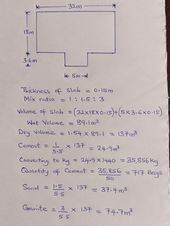 32m
18m
3.6m
5m
Thickness of slab = 0.15m
Mix ratio = 1 : 1.5 : 3
Volume of Slab = (32x18x0.15)+(5x3.6x0.15)
Wet Volume = 89.1m³
Dry Volume = 1.54 x 89.1 = 137m³
Cement = 1/5.5 x 137 = 24.9m³
Converting to kg = 24.9 x 1440 = 35,856 kg
Quantity of Cement = 35,856/50 = 717 Bags
Sand = 1.5/5.5 x 137 = 37.4m³
Granite = 3/5.5 x 137 = 74.7m³